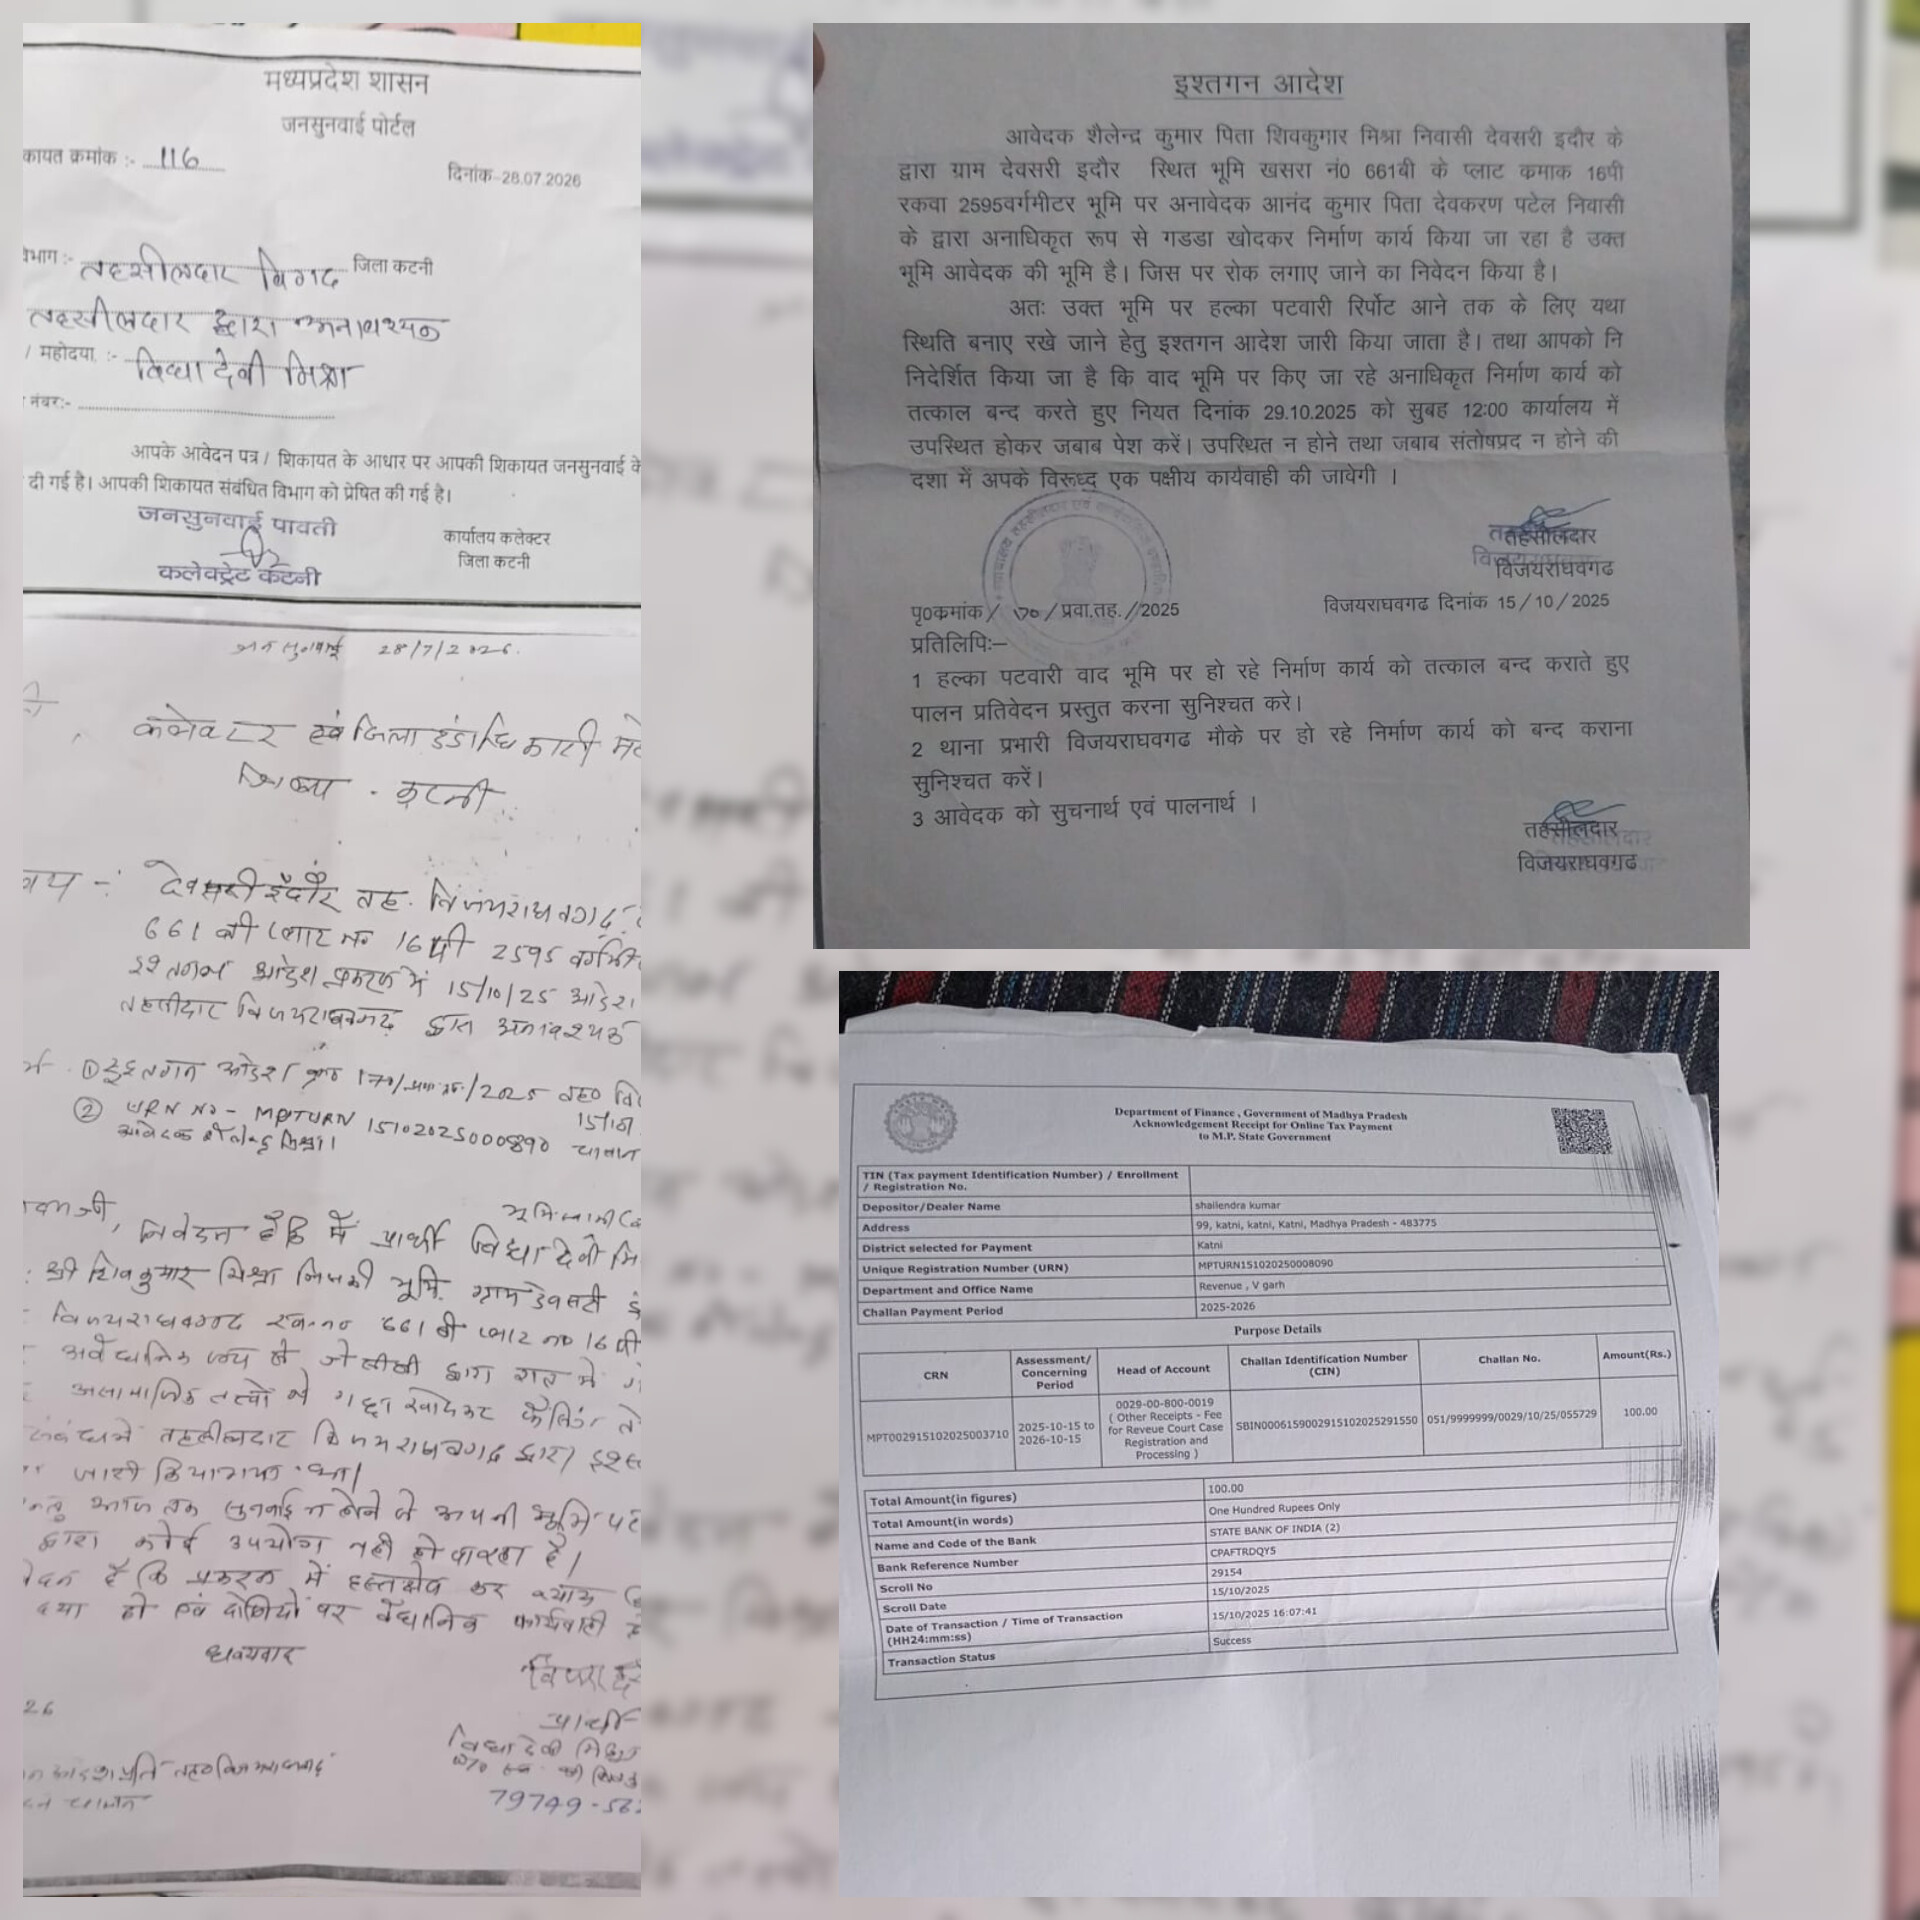 मध्यप्रदेश शासन
जनसुनवाई पोर्टल
कायत क्रमांक :- 116
दिनांक-28.07.2026
जिला कटनी
तहसीलदार द्वारा अनावश्यक
/ महोदया :- विद्या देवी मिश्रा
नंबर:-
आपके आवेदन पत्र / शिकायत के आधार पर आपकी शिकायत जनसुनवाई के
दी गई है। आपकी शिकायत संबंधित विभाग को प्रेषित की गई है।
जनसुनवाई पावती
कार्यालय कलेक्टर
जिला कटनी
कलेक्ट्रेट कटनी
जन सुनवाई 28/7/2026.
कलेक्टर एवं जिला दंडाधिकारी
कटनी
देवसरी इंदौर तह. विजयराघवगढ़
661 बी प्लाट नं 16 पी 2595 वर्गमी
इश्तगन आदेश प्रकरण में 15/10/25 आदेश
तहसीलदार विजयराघवगढ़ द्वारा अनावश्यक
① इश्तगन आदेश /2025 तह0
② URN No - MPTURN 151020250008090 चालान
आवेदक शैलेन्द्र मिश्रा।
निवेदन है कि मैं प्रार्थी विद्या देवी मि
श्री शिवकुमार मिश्रा जिसकी भूमि ग्राम देवसरी इं
विजयराघवगढ़ ख.न0 661 बी प्लाट no 16 पी
अवैधानिक रूप से जे सीबी द्वारा रात में
असामाजिक तत्वों ने गड्ढा खोदकर
तहसीलदार विजयराघवगढ़ द्वारा इश्त
जारी किया गया था।
आज तक सुनवाई न होने से अपनी भूमि पर
द्वारा कोई उपयोग नही हो पा रहा है।
है कि प्रकरण में हस्तक्षेप कर न्याय
हो एवं दोषियों पर वैधानिक कार्यवाही
धन्यवाद
प्रार्थी
विद्या देवी मिश्रा
26
79749-56
इश्तगन आदेश
आवेदक शैलेन्द्र कुमार पिता शिवकुमार मिश्रा निवासी देवसरी इदौर के
द्वारा ग्राम देवसरी इदौर स्थित भूमि खसरा नं0 661बी के प्लाट कमाक 16पी
रकवा 2595वर्गमीटर भूमि पर अनावेदक आनंद कुमार पिता देवकरण पटेल निवासी
के द्वारा अनाधिकृत रूप से गडडा खोदकर निर्माण कार्य किया जा रहा है उक्त
भूमि आवेदक की भूमि है। जिस पर रोक लगाए जाने का निवेदन किया है।
अतः उक्त भूमि पर हल्का पटवारी रिर्पोट आने तक के लिए यथा
स्थिति बनाए रखे जाने हेतु इश्तगन आदेश जारी किया जाता है। तथा आपको नि
निदेर्शित किया जा है कि वाद भूमि पर किए जा रहे अनाधिकृत निर्माण कार्य को
तत्काल बन्द करते हुए नियत दिनांक 29.10.2025 को सुबह 12:00 कार्यालय में
उपस्थित होकर जबाब पेश करें। उपस्थित न होने तथा जबाब संतोषप्रद न होने की
दशा में अपके विरूध्द एक पक्षीय कार्यवाही की जावेगी ।
तहसीलदार
विजयराघवगढ
पृ0कमांक / /प्रवा.तह./2025
विजयराघवगढ दिनांक 15/10/2025
प्रतिलिपिः–
1 हल्का पटवारी वाद भूमि पर हो रहे निर्माण कार्य को तत्काल बन्द कराते हुए
पालन प्रतिवेदन प्रस्तुत करना सुनिश्चत करे।
2 थाना प्रभारी विजयराघवगढ मौके पर हो रहे निर्माण कार्य को बन्द कराना
सुनिश्चत करें।
3 आवेदक को सुचनार्थ एवं पालनार्थ ।
तहसीलदार
विजयराघवगढ
Department of Finance , Government of Madhya Pradesh
Acknowledgement Receipt for Online Tax Payment
to M.P. State Government
TIN (Tax payment Identification Number) / Enrollment
/ Registration No.
Depositor/Dealer Name shailendra kumar
Address 99, katni, katni, Katni, Madhya Pradesh - 483775
District selected for Payment Katni
Unique Registration Number (URN) MPTURN151020250008090
Department and Office Name Revenue , V garh
Challan Payment Period 2025-2026
Purpose Details
CRN Assessment/ Concerning Period Head of Account Challan Identification Number (CIN) Challan No. Amount(Rs.)
MPT002915102025003710 2025-10-15 to 2026-10-15 0029-00-800-0019 ( Other Receipts - Fee for Reveue Court Case Registration and Processing ) SBIN0006159002915102025291550 051/9999999/0029/10/25/055729 100.00
Total Amount(in figures) 100.00
Total Amount(in words) One Hundred Rupees Only
Name and Code of the Bank STATE BANK OF INDIA (2)
Bank Reference Number CPAFTRDQY5
Scroll No 29154
Scroll Date 15/10/2025
Date of Transaction / Time of Transaction (HH24:mm:ss) 15/10/2025 16:07:41
Transaction Status Success